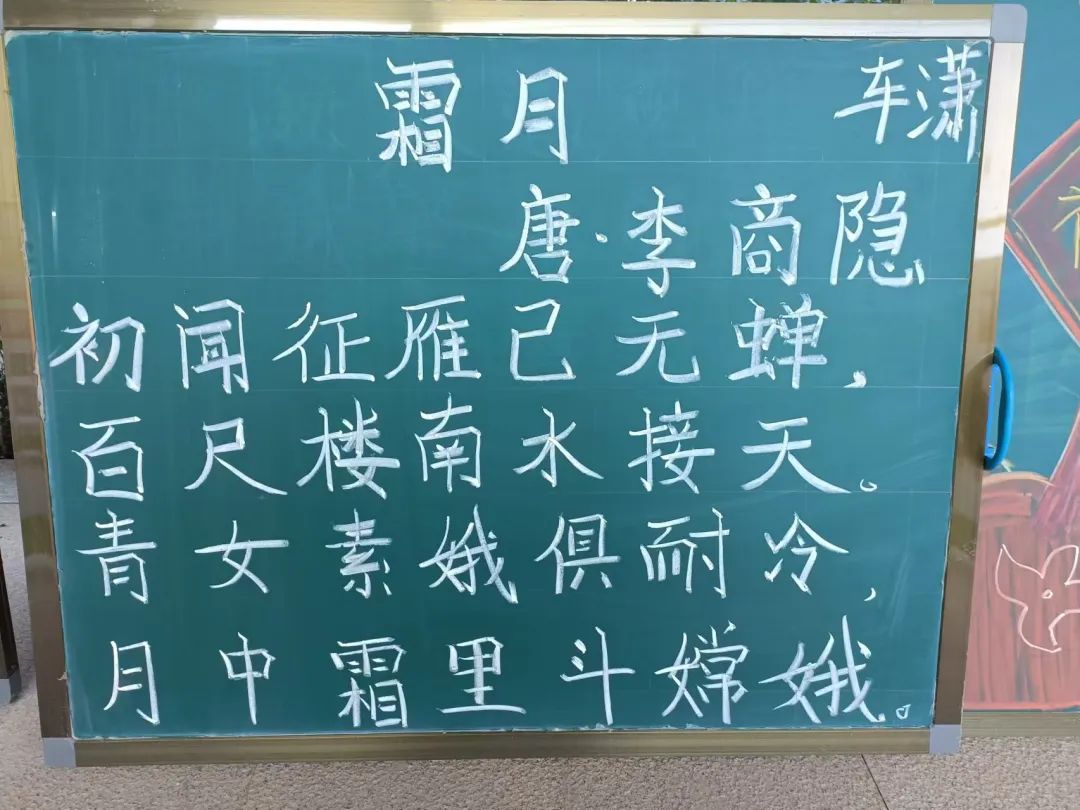 霜月 车潇
唐·李商隐
初闻征雁己无蝉，
百尺楼南水接天。
青女素娥俱耐冷，
月中霜里斗嫦娥。